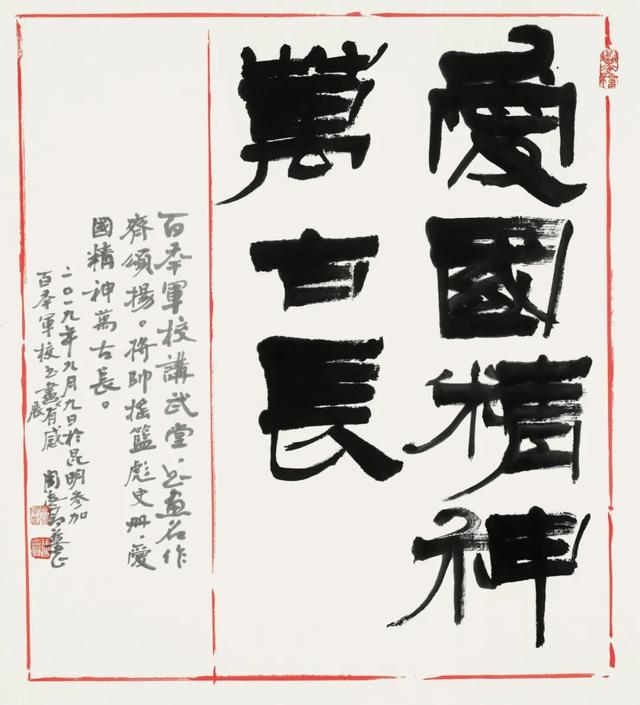 愛國精神
萬古長
百年軍校講武堂，书画名作
齊頌揚。將帥摇籃彪史册，愛
國精神萬古長。
二〇一九年九月九日於昆明参加
百年軍校书畫展有感